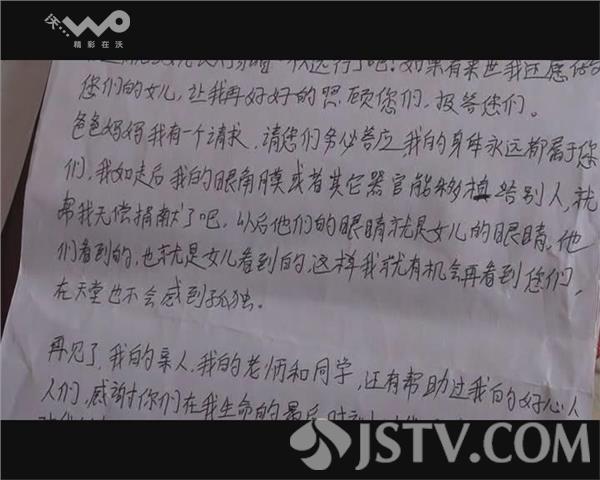 沃...WO
精彩在沃
一次远行了吧!如果有来世我还愿做
您们的女儿,让我再好好的照顾您们,报答您们。
爸爸妈妈我有一个请求,请您们务必答应,我的身体永远都属于您
们,我如走后我的眼角膜或者其它器官能移植给别人,就
帮我无偿捐献了吧,以后他们的眼睛就是女儿的眼睛。他
们看到的,也就是女儿看到的,这样我就有机会再看到您们,
在天堂也不会感到孤独。
再见了,我的亲人,我的老师和同学,还有帮助过我的好心人
人们,感谢你们在我生命的最后时刻
JSTV.COM